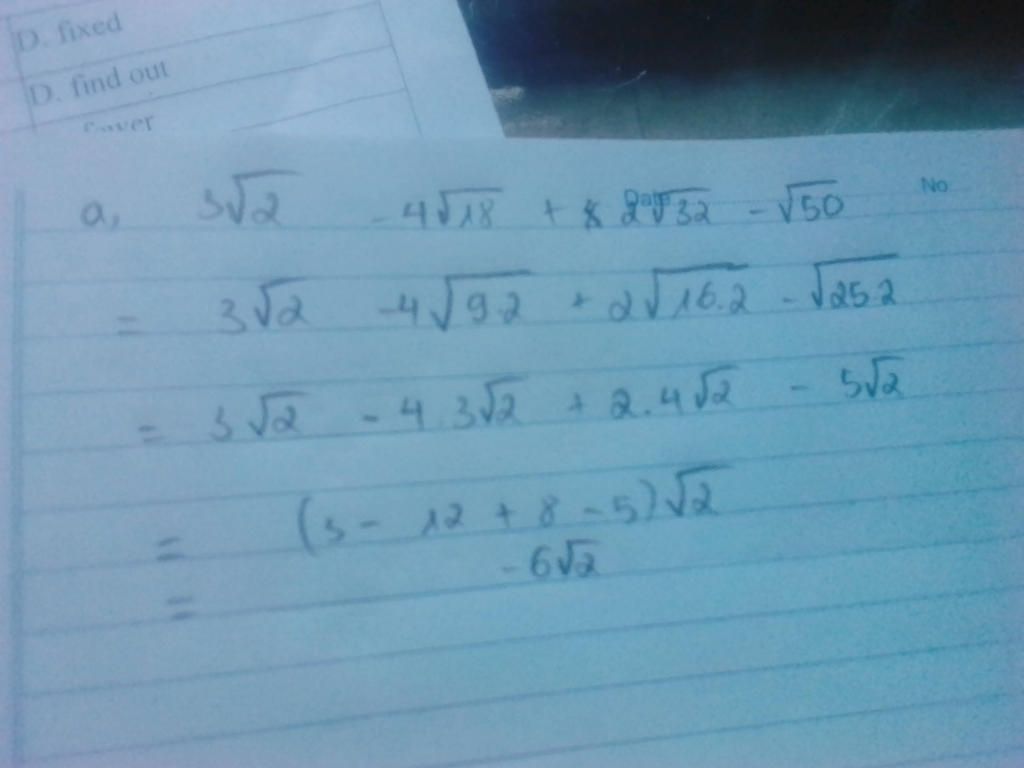 D. fixed
D. find out
No
Date
a, 3√2 - 4√18 + 2√32 - √50
= 3√2 - 4√9.2 + 2√16.2 - √25.2
= 3√2 - 4.3√2 + 2.4√2 - 5√2
= (3 - 12 + 8 - 5)√2
= - 6√2